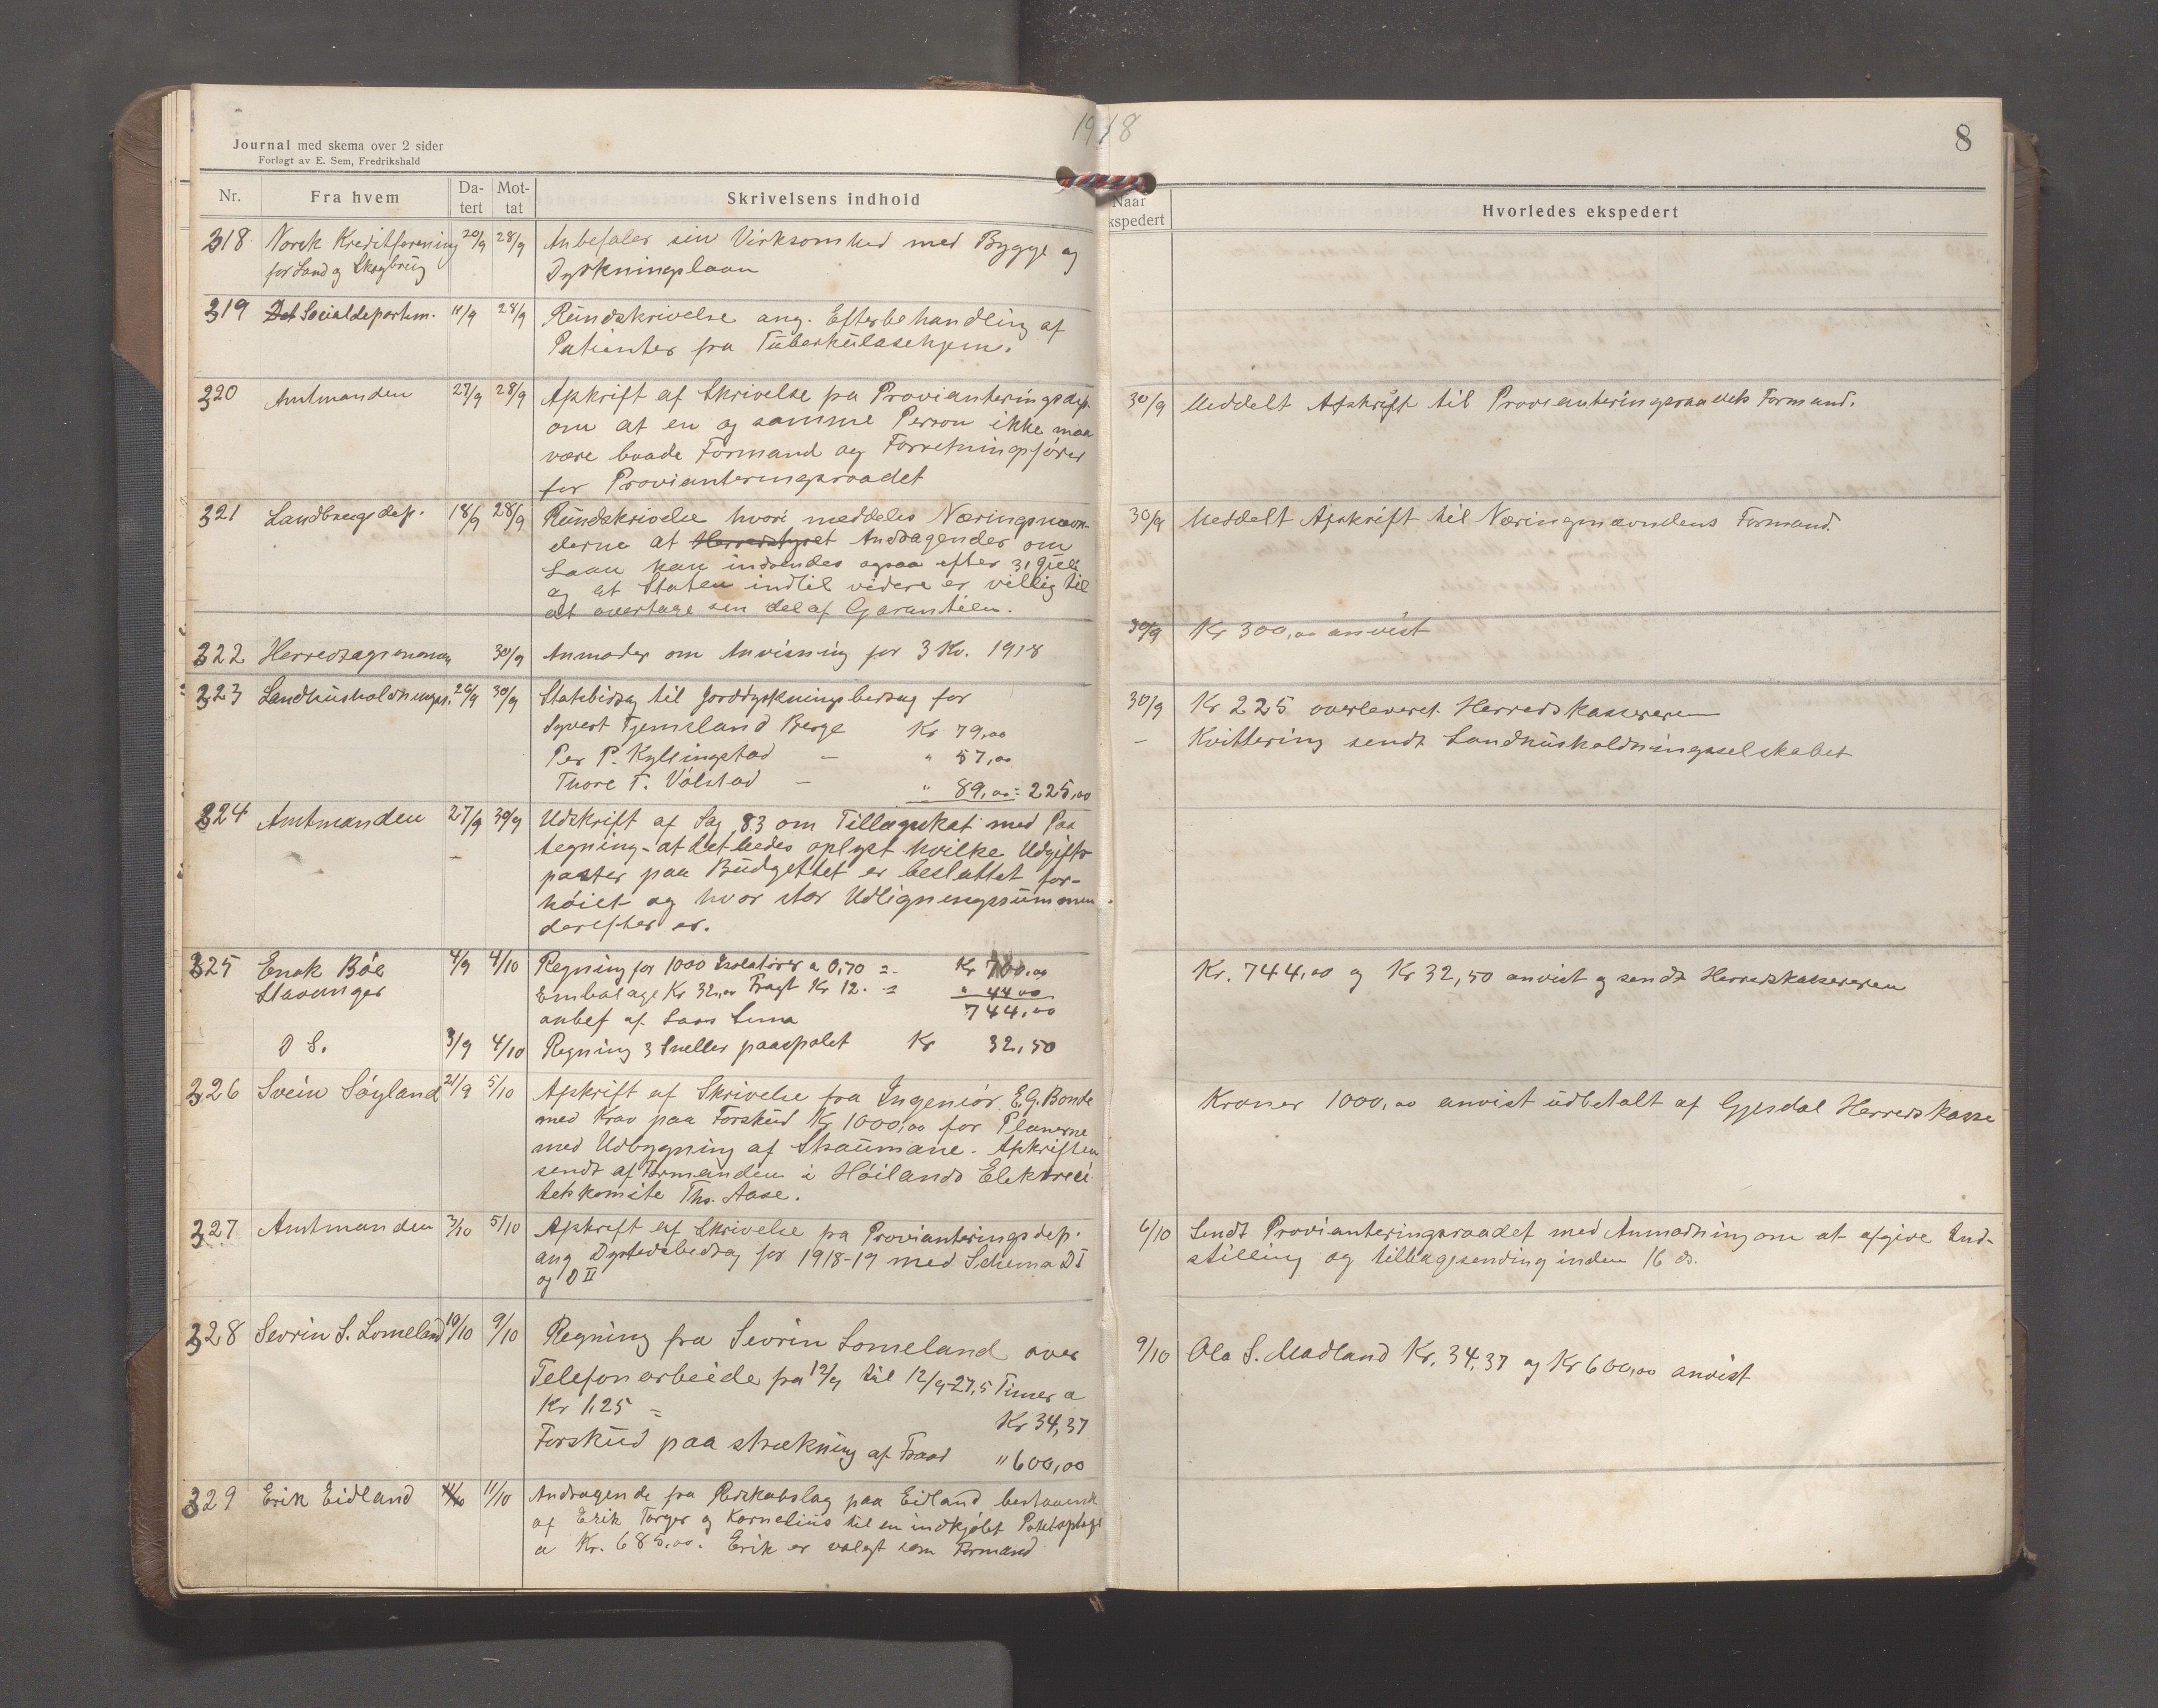 1918
8
Journal med skema over 2 sider
Forlagt av E. Sem, Fredrikshald
Nr.
Fra hvem
Da-
tert
Mot-
tat
Skrivelsens indhold
Naar
kspedert
Hvorledes ekspedert
318 Norsk Kreditforening 20/9 28/9 Anbefaler sin Virksomhed med Bygge og
for Land og Skogbrug Dyrkningslaan
319 Det Socialdepartem. 11/9 28/9 Rundskrivelse ang. Efterbehandling af
Patienter fra Tuberkulosehjem.
320 Amtmanden 27/9 28/9 Afskrift af Skrivelse fra Provianteringsdep.
om at en og samme Person ikke maa
være baade Formand og Forretningsfører
for Provianteringsraadet
30/9 Meddelt Afskrift til Provianteringsraadets Formand.
321 Landbrugsdep. 18/9 28/9 Rundskrivelse hvori meddeles Næringsnævn-
derne at Herredstyret Andragender om
Laan kan indsendes ogsaa efter 31 Juli
og at Staten indtil videre er villig til
at overtage sin del af Garantien.
30/9 Meddelt Afskrift til Næringsnævndens Formand.
322 Herredsagronomen 30/9 Anmoder om Anvisning for 3 Kv. 1918
30/9 Kr 300,00 anvist
323 Landhusholdningss. 26/9 30/9 Statsbidrag til Jorddyrkningsbidrag for
Syvert Tjemsland Berge Kr 79,00
Per P. Kyllingstad - " 57,00
Thore T. Vølstad - " 89,00 = 225,00
30/9 Kr 225 overleveret Herredskassereren
- Kvittering sendt Landhusholdningsselskabet
324 Amtmanden 27/9 30/9 Udskrift af Sag 83 om Tillægskat med Paa
tegning - at det bedes oplyst hvilke Udgifts
poster paa Budgettet er besluttet for-
høiet og hvor stor Udligningssummen
derefter er.
325 Enok Bøe 4/9 4/10 Regning for 1000 Isolatorer a 0,70 = Kr 700,00
Stavanger Embalage Kr 32,00 Fragt Kr 12. = " 44 00
anbef af Lars Lima 744,00
D S. 3/9 4/10 Regning 3 Sneller paaspolet Kr 32,50
Kr. 744,00 og Kr 32,50 anvist og sendt Herredskassereren
326 Svein Søyland 21/9 5/10 Afskrift af Skrivelse fra Ingeniør E.G. Bonde
med Krav paa Forskud Kr 1000,00 for Planerne
med Udbygning af Straumane. Afskriften
sendt af Formanden i Høilands Elektrici
tetskomite Ths. Aase.
Kroner 1000,00 anvist udbetalt af Gjesdal Herredskasse
327 Amtmanden 3/10 5/10 Afskrift af Skrivelse fra Provianteringsdep.
ang Dyrtidsbidrag for 1918-19 med Schema D I
og D II
6/10 Sendt Provianteringsraadet med Anmodning om at afgive Ind-
stilling og tilbagesending inden 16 ds.
328 Sevrin S. Lomeland 10/10 9/10 Regning fra Sevrin Lomeland over
Telefonarbeide fra 12/9 til 12/9-27,5 Timer a
Kr 1,25 = Kr 34,37
Forskud paa strækning af Traad " 600,00
9/10 Ola S. Madland Kr. 34,37 og Kr 600,00 anvist
329 Erik Eidland 11/10 11/10 Andragende fra Redskabslag paa Eidland bestaaende
af Erik Torger og Kornelius til en indkjøbt
a Kr. 685,00. Erik er valgt som Formand